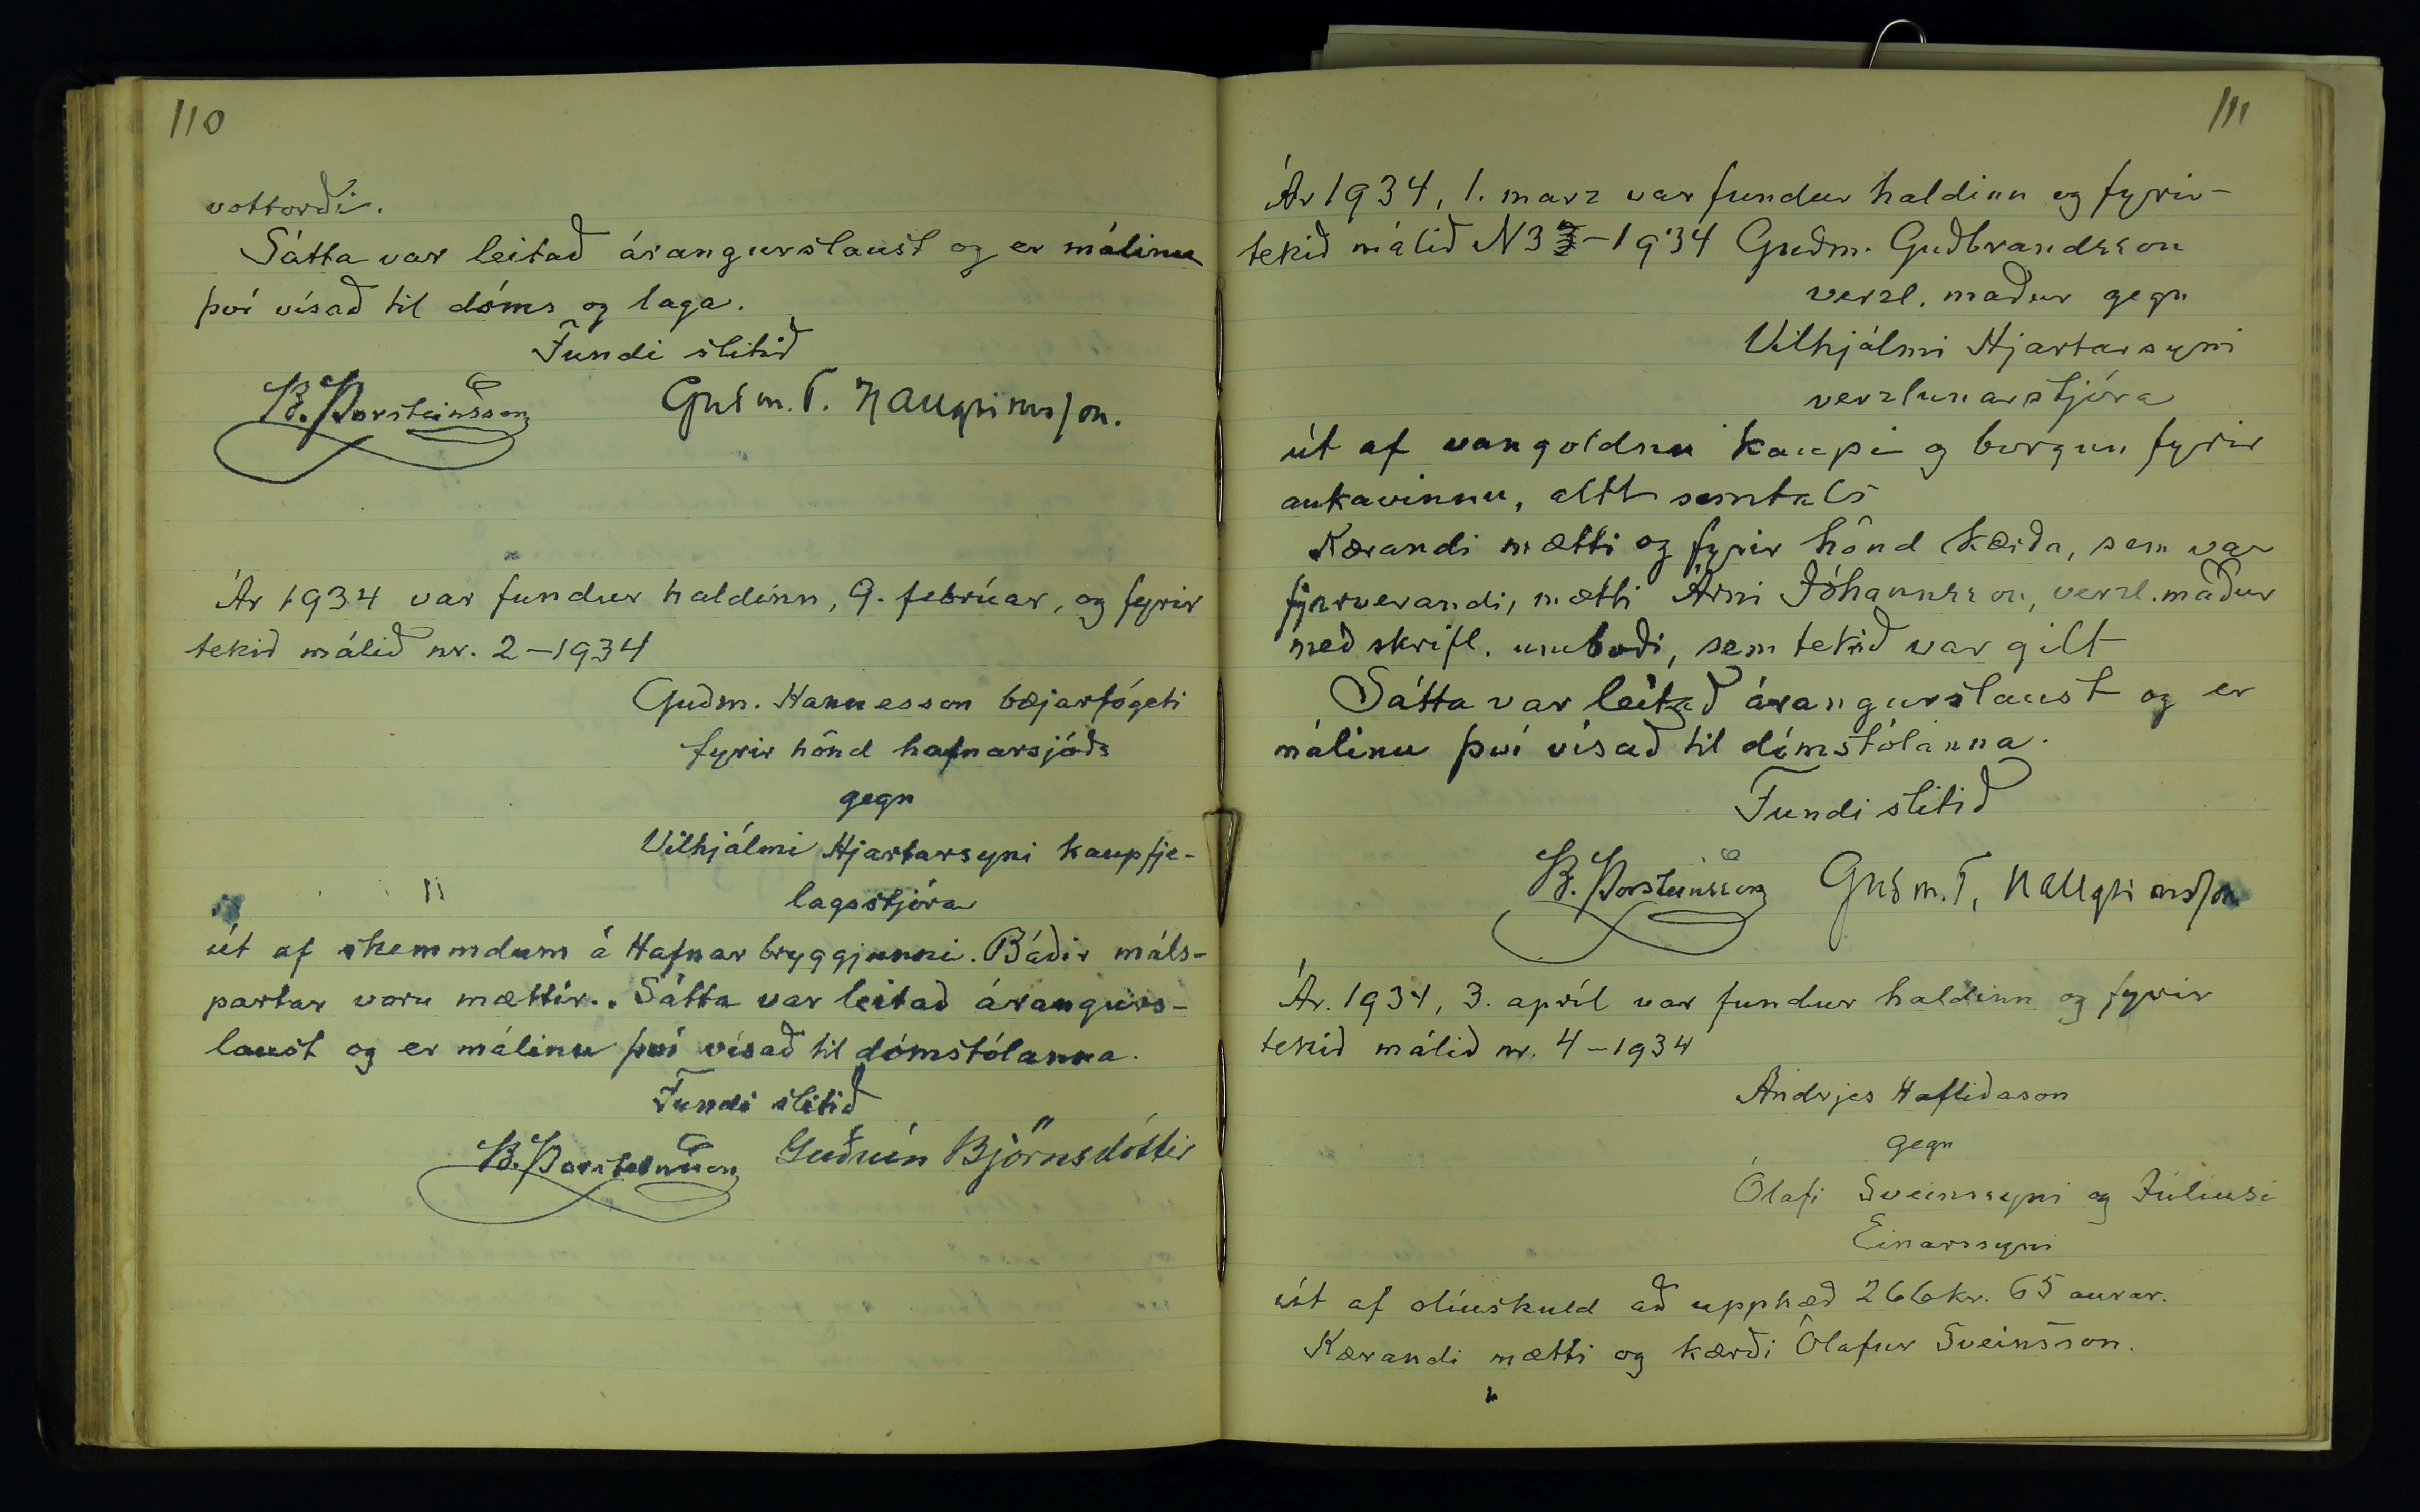 110
vottorði.
Sátta var leitað árangurslaust og er málinu
því vísað til dóms og laga.
Fundi slitið
B. Þorsteinsson Guðm. T. Hallgrimsson.
Ár 1934 var fundur haldinn, 9. febrúar, og fyrir
tekið málið nr. 2-1934
Guðm. Hannesson bæjarfógeti
fyrir hönd hafnarsjóðs
gegn
Vilhjálmi Hjartarsyni kaupfje-
lagsstjóra
út af skemmdum á Hafnarbryggjunni. Báðir máls-
partar voru mættir. Sátta var leitað árangurs-
laust og er málinu því vísað til dómstólanna.
Fundi slitið
B. Þorsteinsson Guðrún Björnsdóttir
111
Ár 1934, 1. marz var fundur haldinn og fyrir-
tekið málið N3 -1934 Guðm. Guðbrandsson
verzl. maður gegn
Vilhjálmi Hjartarsyni
verzlunarstjóra
út af vangoldnu kaupi og borgun fyrir
aukavinnu, allt samtals
Kærandi mætti og fyrir hönd kærða, sem var
fjarverandi, mætti Árni Jóhannsson, verzl. maður
með skrifl. umboði, sem tekið var gilt
Sátta var leitað árangurslaust og er
málinu því vísað til dómstólanna.
Fundi slitið
B. Þorsteinsson Guðm. T. Hallgrimsson
Ár. 1934, 3. apríl var fundur haldinn og fyrir
tekið málið nr. 4-1934
Andrjes Hafliðason
gegn
Ólafi Sveinssyni og Júliusi
Einarssyni
út af olíuskuld að upphæð 266kr. 65 aurar.
Kærandi mætti og kærði Ólafur Sveinsson.